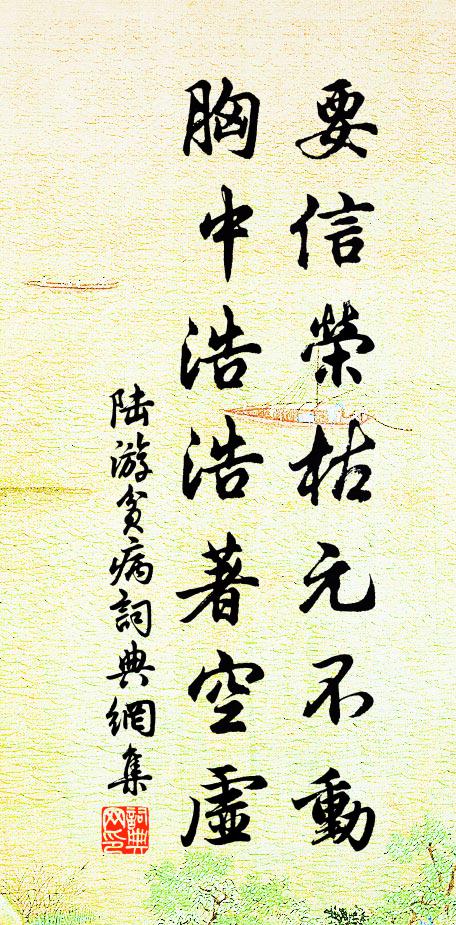 要信榮枯元不動
胸中浩浩著空虛
陸游貧病詞典網集
詞典網印